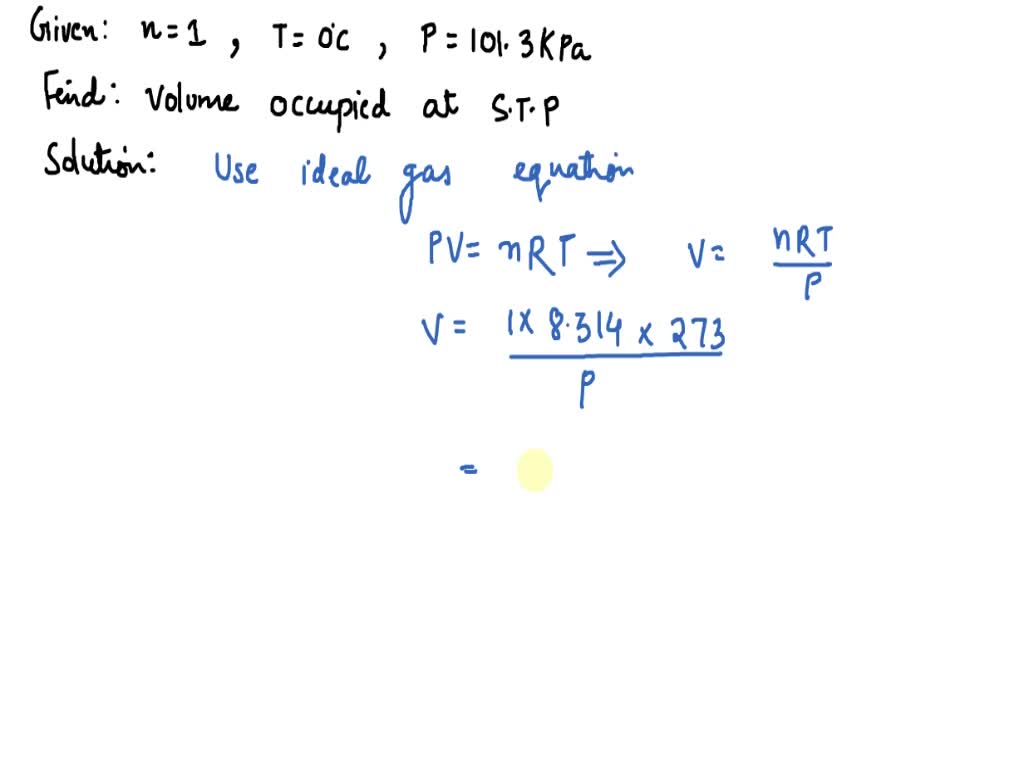 Given: n=1, T=0°C, P=101.3KPa
Feind: Volume occupied at S.T.P
Solution: Use ideal gas equation
PV=nRT⇒ V= nRT/P
V= 1×8.314×273/P
=